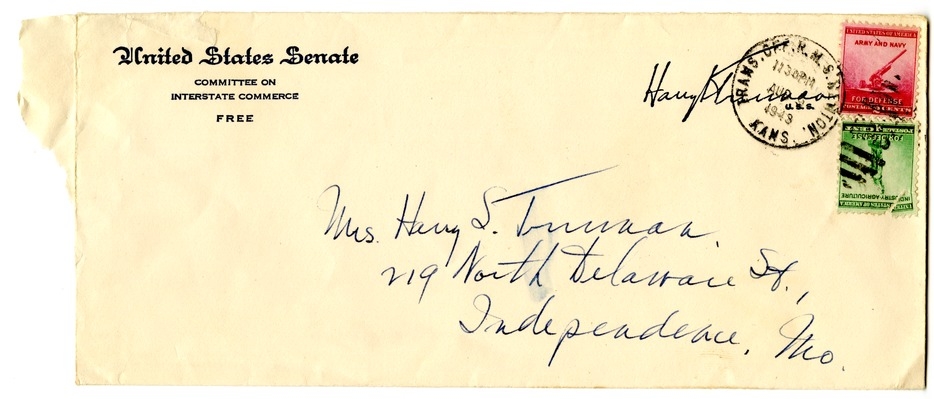 United States Senate
COMMITTEE ON
INTERSTATE COMMERCE
FREE
Harry S. Truman
U.S.S.
TRANS. OFF. R.M.S. NEWTON, KANS.
1130PM
AUG
1943
UNITED STATES OF AMERICA
ARMY AND NAVY
FOR DEFENSE
POSTAGE 2 CENTS
UNITED STATES OF AMERICA
INDUSTRY AGRICULTURE
FOR DEFENSE
POSTAGE 1 CENT
Mrs. Harry S. Truman
219 North Delaware St.,
Independence, Mo.